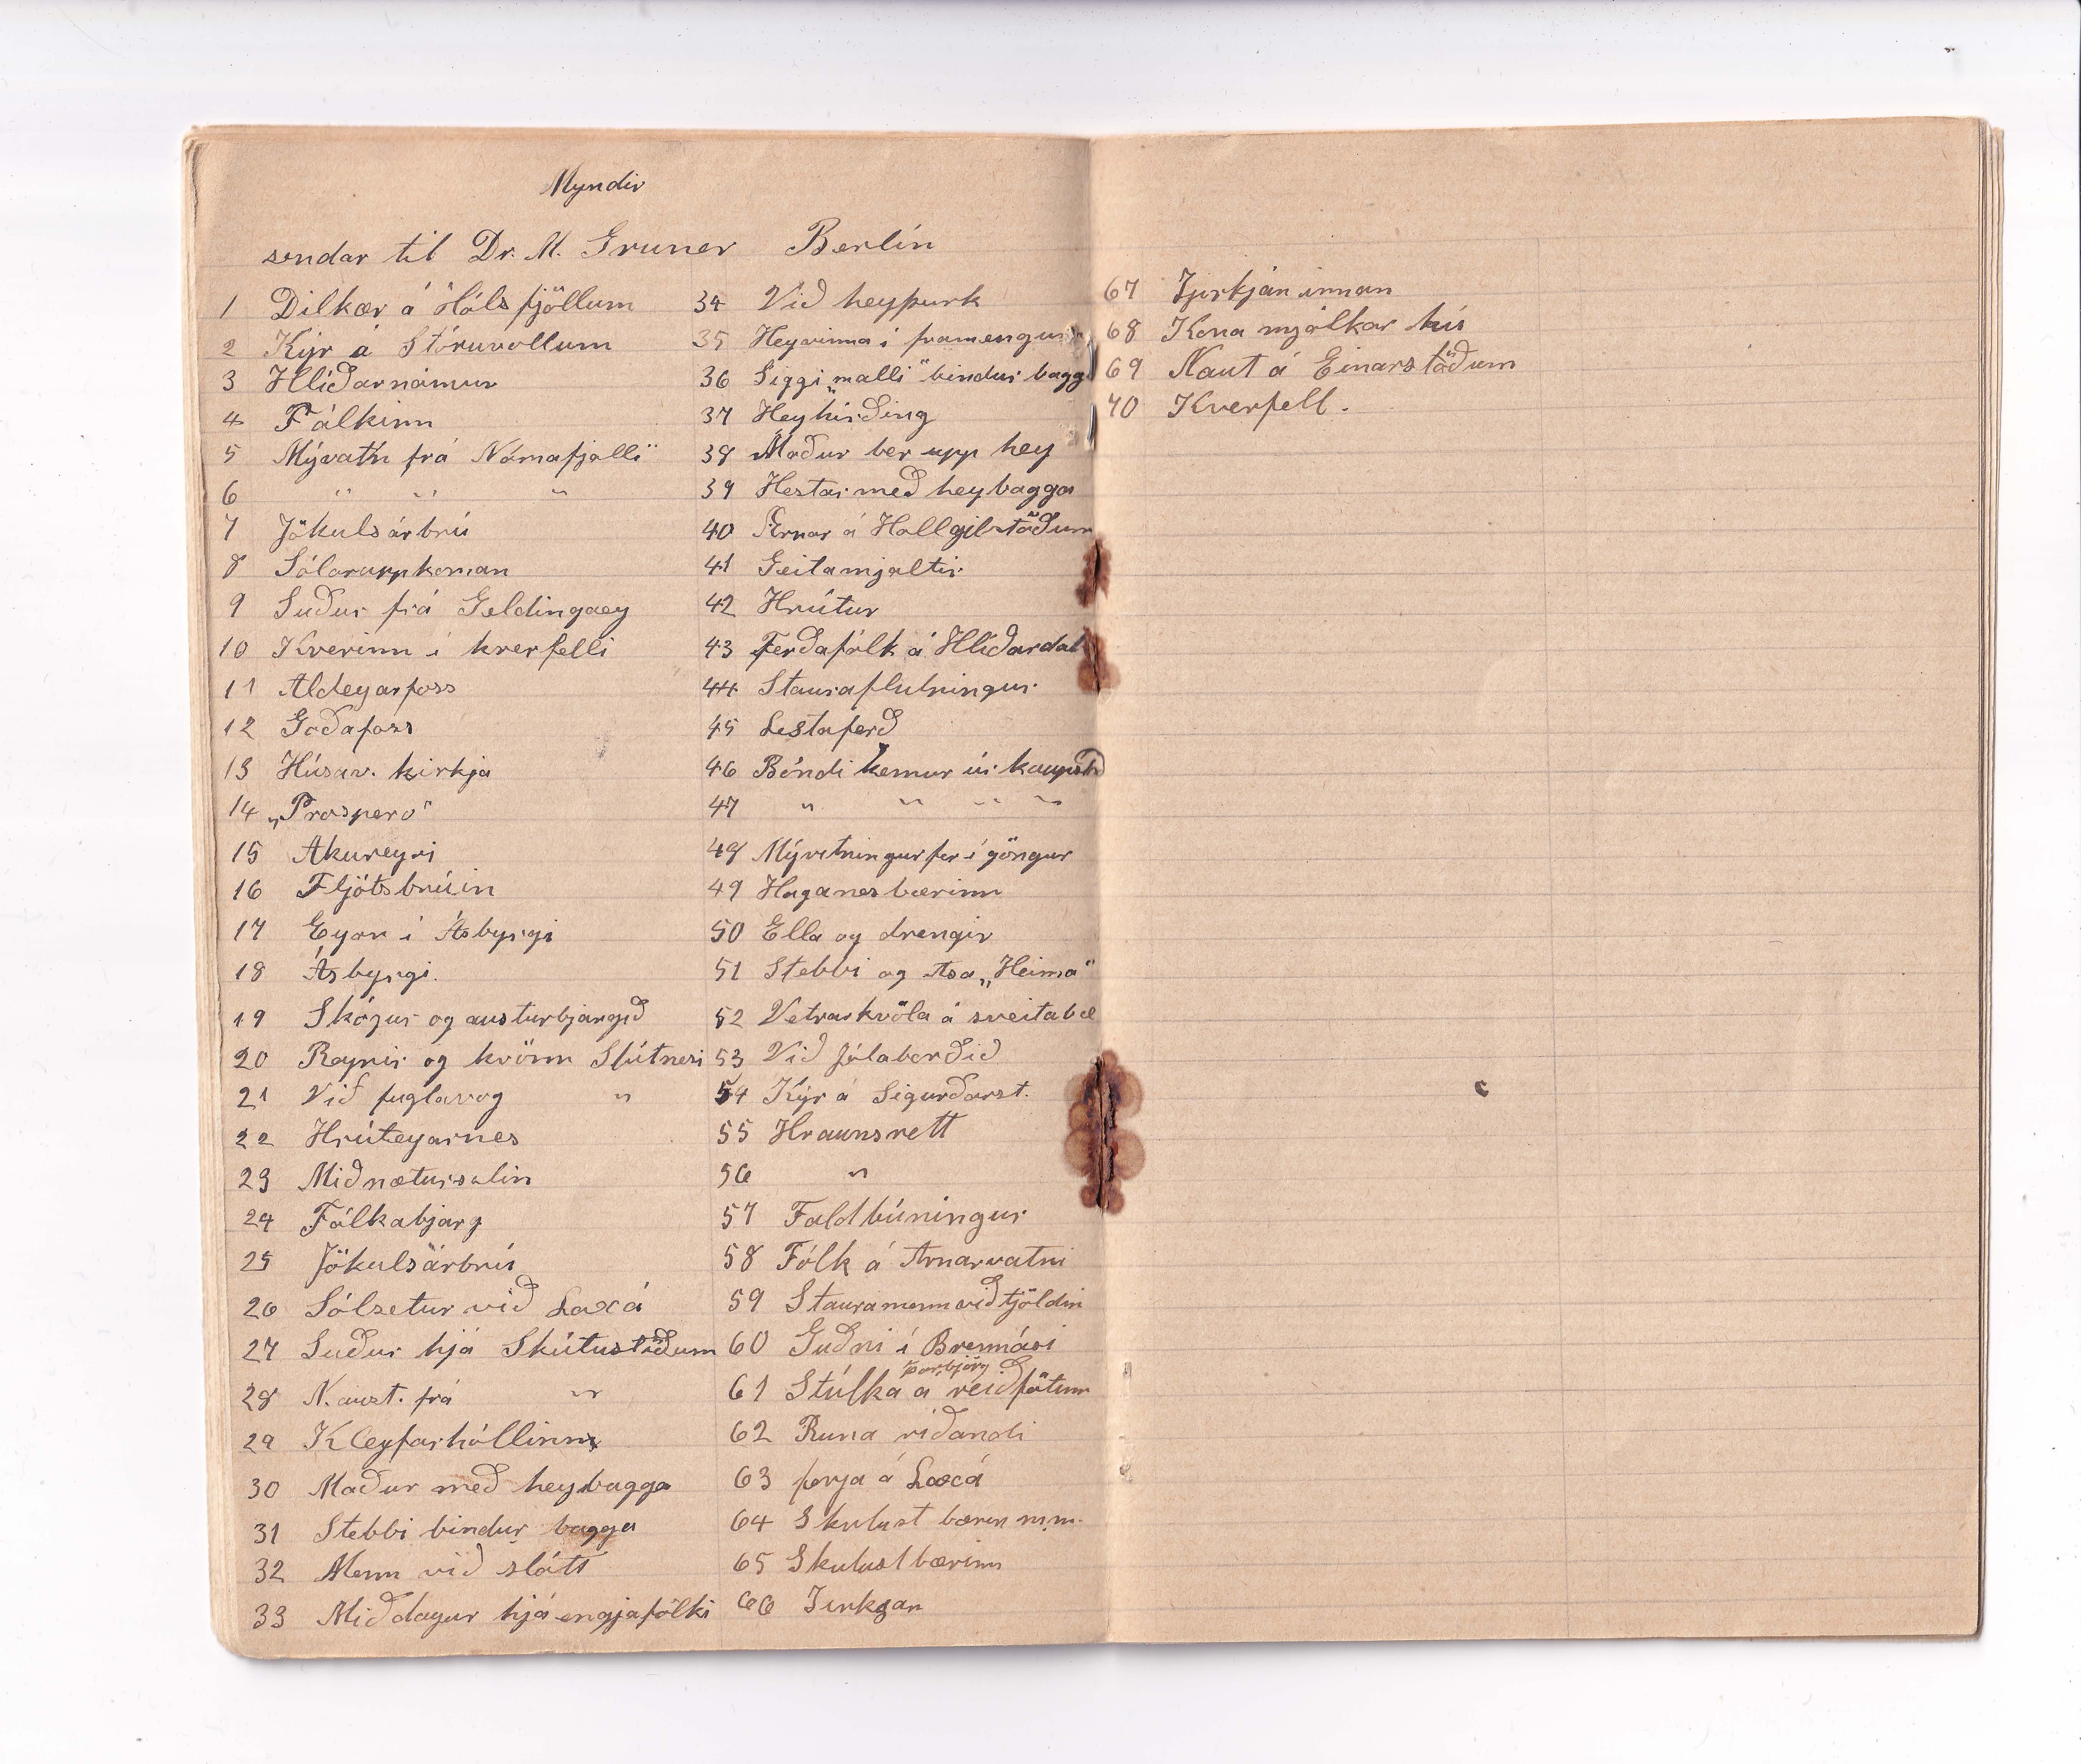 Myndir
sendar til Dr. M. Gruner Berlín
1 Dilkær á Hólsfjöllum
2 Kýr á Stóruvollum
3 Hlíðarnámur
4 Fálkinn
5 Mývatn frá Námafjalli
6 " " "
7 Jökulsárbrú
8 Sólaruppkoman
9 Suður frá Geldingaey
10 Kverinn í kverfelli
11 Aldeyarfoss
12 Goðafoss
13 Húsav. kirkja
14 „Prospero"
15 Akureyri
16 Fljótsbrúin
17 Eyan í Ásbyrgi
18 Ásbyrgi.
19 Skógur og austurbjargið
20 Reynir og hvönn Slútnesi
21 Við fuglavog "
22 Hrúteyarnes
23 Miðnætursólin
24 Fálkabjarg
25 Jökulsárbrú
26 Sólsetur við Laxá
27 Suður hjá Skútustöðum
28 N. aust. frá "
29 Kleyfarhóllinn
30 Maður með heybagga
31 Stebbi bindur bagga
32 Menn við slátt
33 Miðdagur hjá engjafólki
34 Við heyþurk
35 Heyvinna í framengjum
36 Siggi „malli" bindur bagga
37 Heyhirðing
38 Maður ber upp hey
39 Hestar með heybagga
40 Ærnar á Hallgilstöðum
41 Geitamjaltir
42 Hrútur
43 Ferðafólk á Hlíðardal
44 Stauraflutningur
45 Lestaferð
46 Bóndi kemur úr kaupstað
47 " " " "
48 Mývetningur fer í göngur
49 Haganesbærinn
50 Ella og drengir
51 Stebbi og Asa „Heima"
52 Vetrarkvöla á sveitabæ
53 Við Jólaborðið
54 Kýr á Sigurðarst.
55 Hraunsrett
56 "
57 Faldbúningur
58 Fólk á Arnarvatni
59 Stauramenn við tjöldin
60 Guðni í Brennási
Þorbjörg
61 Stúlka á reiðfötum
62 Runa ríðandi
63 ferja á Laxá
64 Skutust bærin m.m.
65 Skutust bærinn
66
67 innan
68 Kona mjólkar kú
69 Naut á Einarstöðum
70 Kverfell.